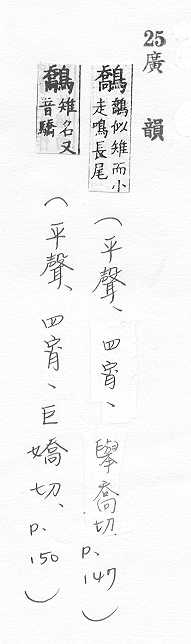 25廣韻
鷮 鷮似雉而小走鳴長尾
（平聲、四宵、舉喬切.p.147）
鷮 雉名又音驕
（平聲、四宵、巨嬌切、p.150）